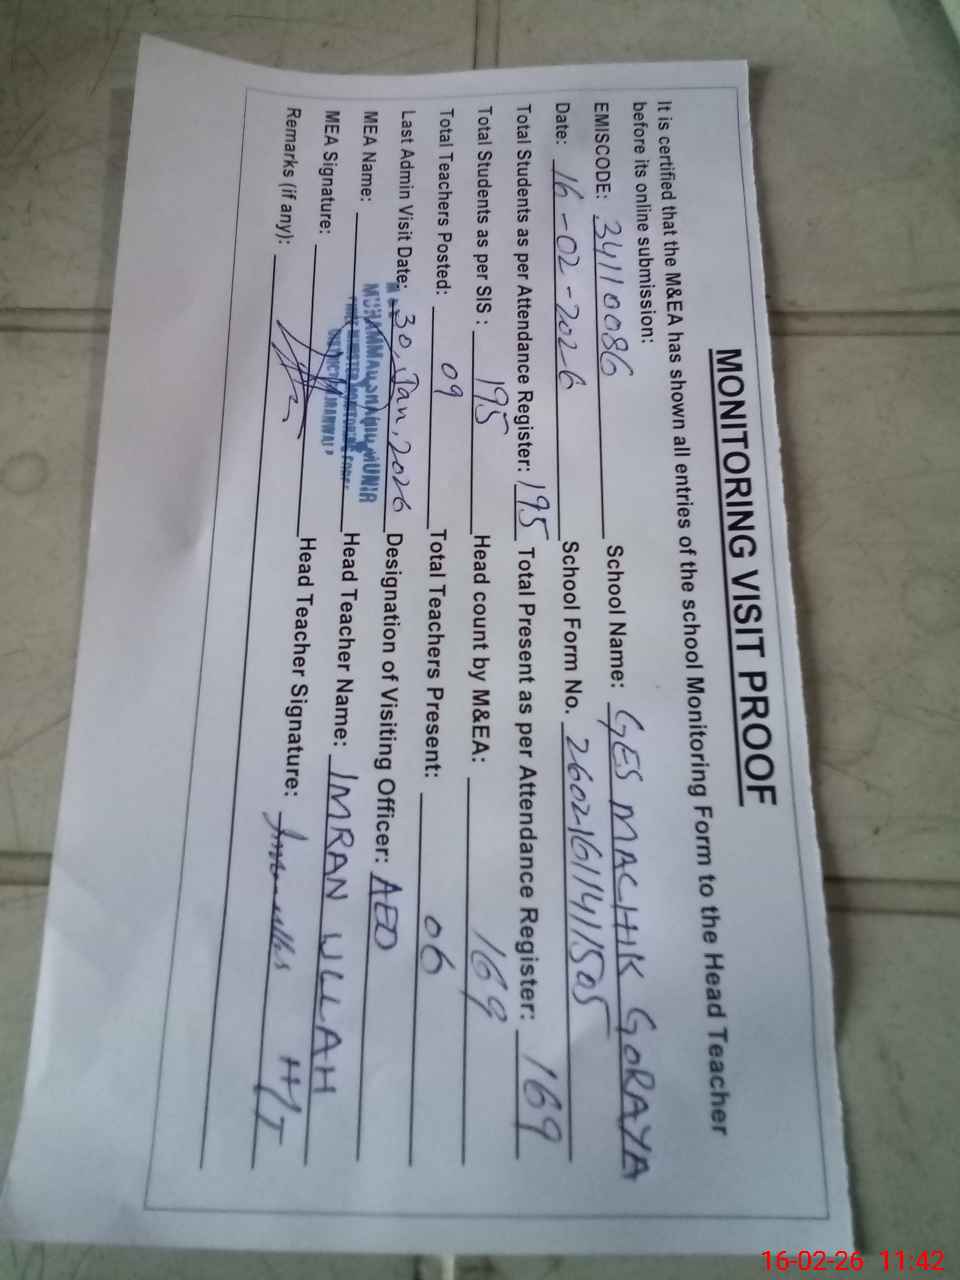 MONITORING VISIT PROOF
It is certified that the M&EA has shown all entries of the school Monitoring Form to the Head Teacher
before its online submission:
EMISCODE: 34110086 School Name: GES MACHIK GORAYA
Date: 16-02-2026 School Form No. 26021611411505
Total Students as per Attendance Register: 195 Total Present as per Attendance Register: 169
Total Students as per SIS : 195 Head count by M&EA: 169
Total Teachers Posted: 09 Total Teachers Present: 06
Last Admin Visit Date: 30, Jan, 2026 Designation of Visiting Officer: AEO
MEA Name: MUHAMMAD MUNIR Head Teacher Name: IMRAN ULLAH
MEA Signature: Head Teacher Signature: HT
Remarks (if any):
16-02-26 11:42